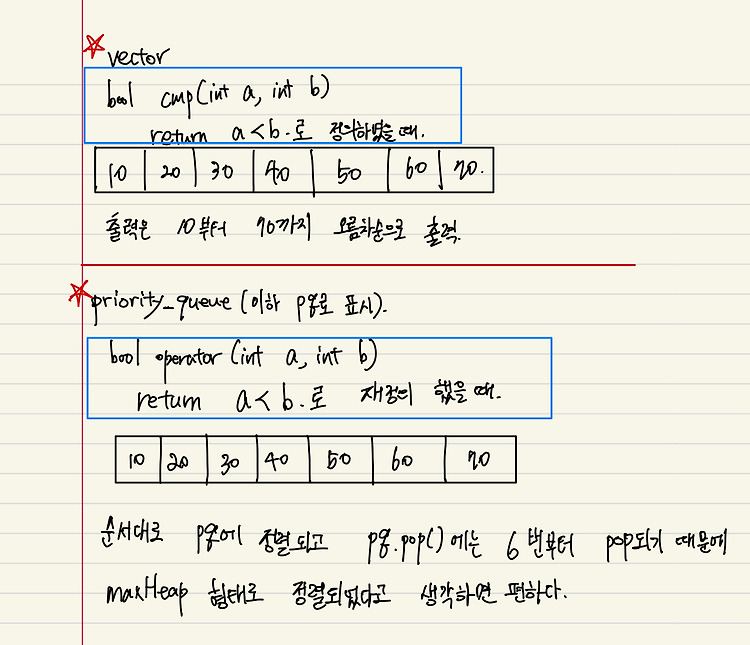 vector
bool cmp(int a, int b)
return a<b.로 정의하였을때.
10 20 30 40 50 60 70.
출력은 10부터 70까지 오름차순으로 출력.
priority_queue (이하 pq로 표시).
bool operator (int a, int b)
return a<b.로 재정의 했을때.
10 20 30 40 50 60 70
순서대로 pq에 정렬되고 pq.pop()에는 6번부터 pop되기 때문에
maxHeap 형태로 정렬되었다고 생각하면 편하다.